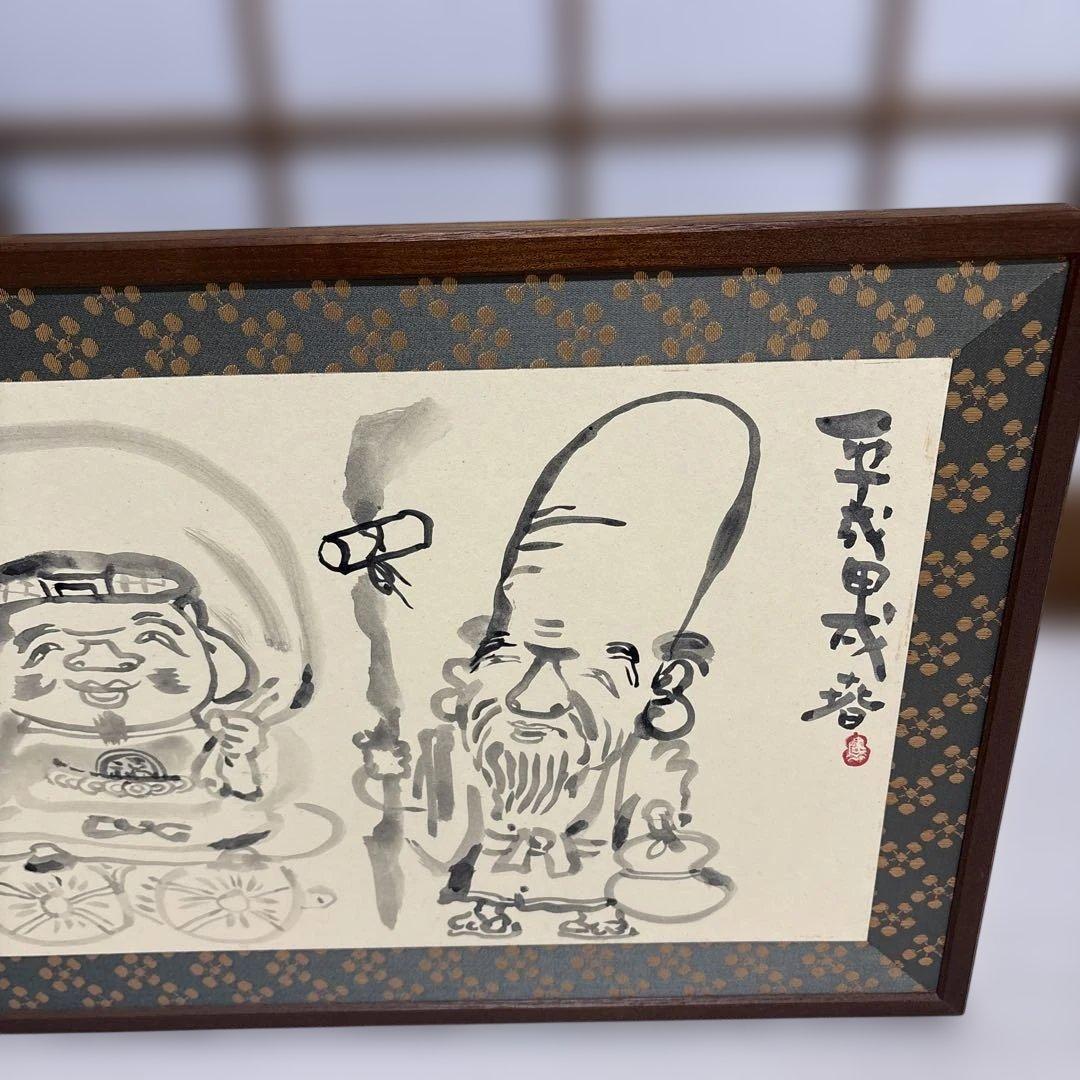 平成甲戌春